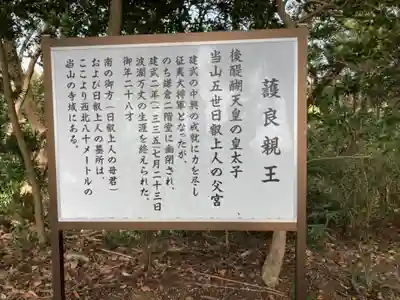 護良親王
後醍醐天皇の皇太子
当山五世日叡上人の父宮
建武の中興の成就に力を尽し
征夷大将軍となったが、
のち鎌倉二階堂に幽閉され、
建武二年(一三三五)七月二十三日
波瀾万丈の生涯を終えられた。
御年二十八才
南の御方(日叡上人の母君)
および日叡上人の墓所は、
ここより西北八十メートルの
当山の寺域にある。